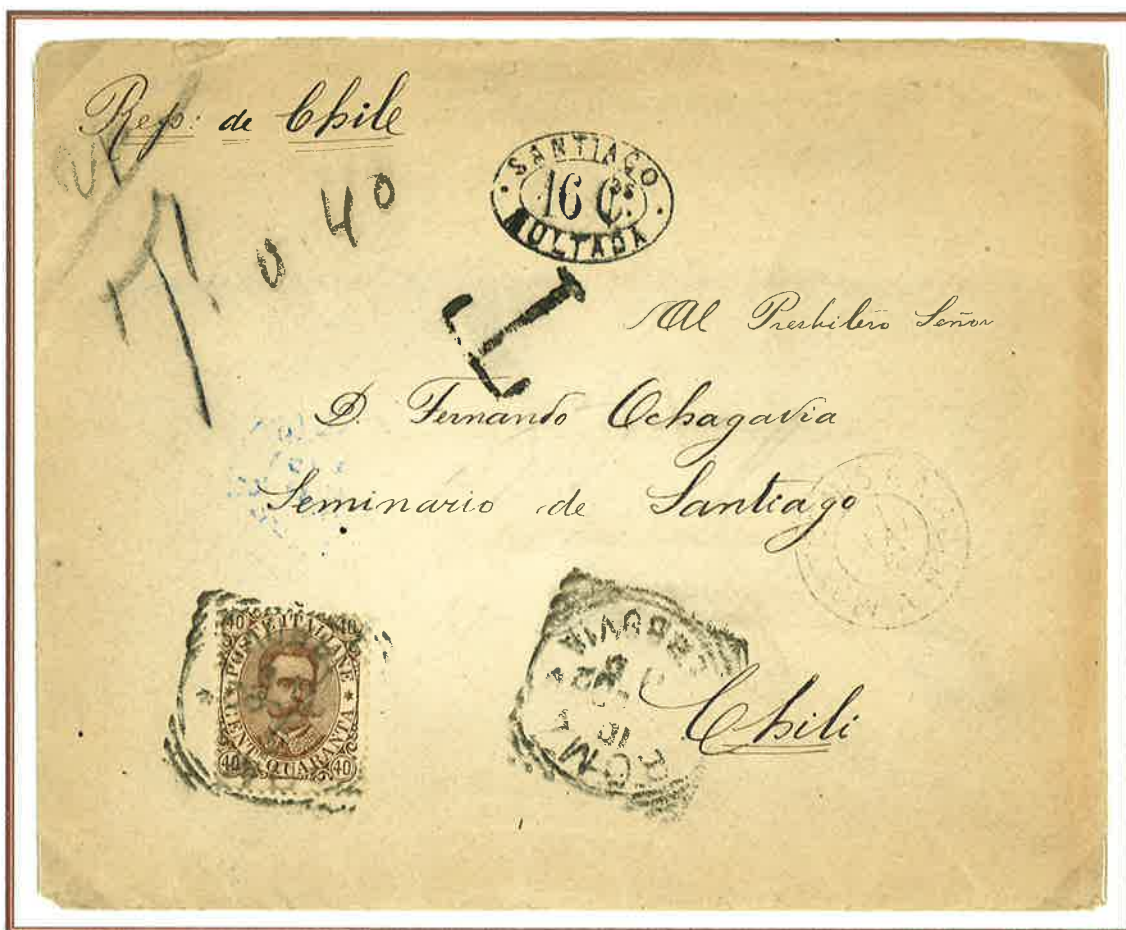 Rep: de Chile
T
0 40
SANTIAGO
16 Cs.
MULTADA
T
Al Presbitero Señor
D. Fernando Ochagavia
Seminario de Santiago
40 POSTE ITALIANE 40
CENTESIMI QUARANTA
40 40
ROMA
FERROVIA
Chili